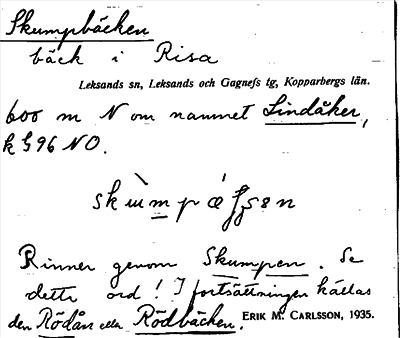 Skumpbäcken
bäck i Risa
Leksands sn, Leksands och Gagnefs tg, Kopparbergs län.
600 m N om namnet Lindåker,
k 596 NO.
Rinner genom Skumpen. Se
detta ord! I fortsättningen kallas
den Rödån eller Rödbäcken.
ERIK M. CARLSSON, 1935.